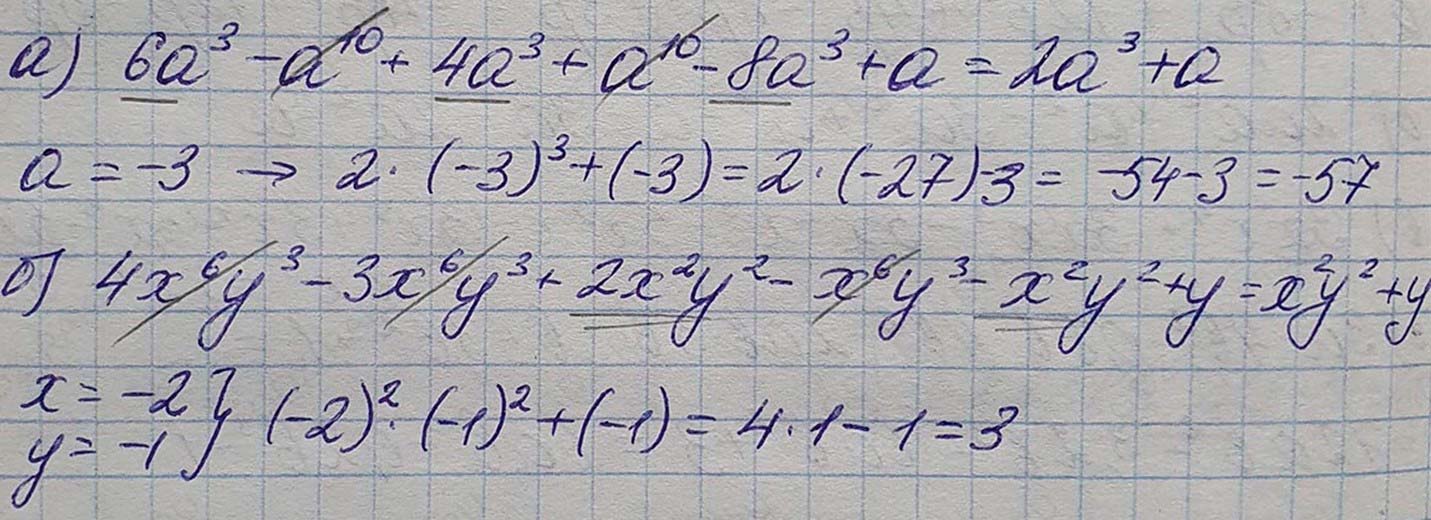 а) 6a³ - a¹⁰ + 4a³ + a¹⁰ - 8a³ + a = 2a³ + a
a = -3 → 2 · (-3)³ + (-3) = 2 · (-27) - 3 = -54 - 3 = -57
б) 4x⁶y³ - 3x⁶y³ + 2x²y² - x⁶y³ - x²y² + y = x²y² + y
x = -2
y = -1 } (-2)² · (-1)² + (-1) = 4 · 1 - 1 = 3